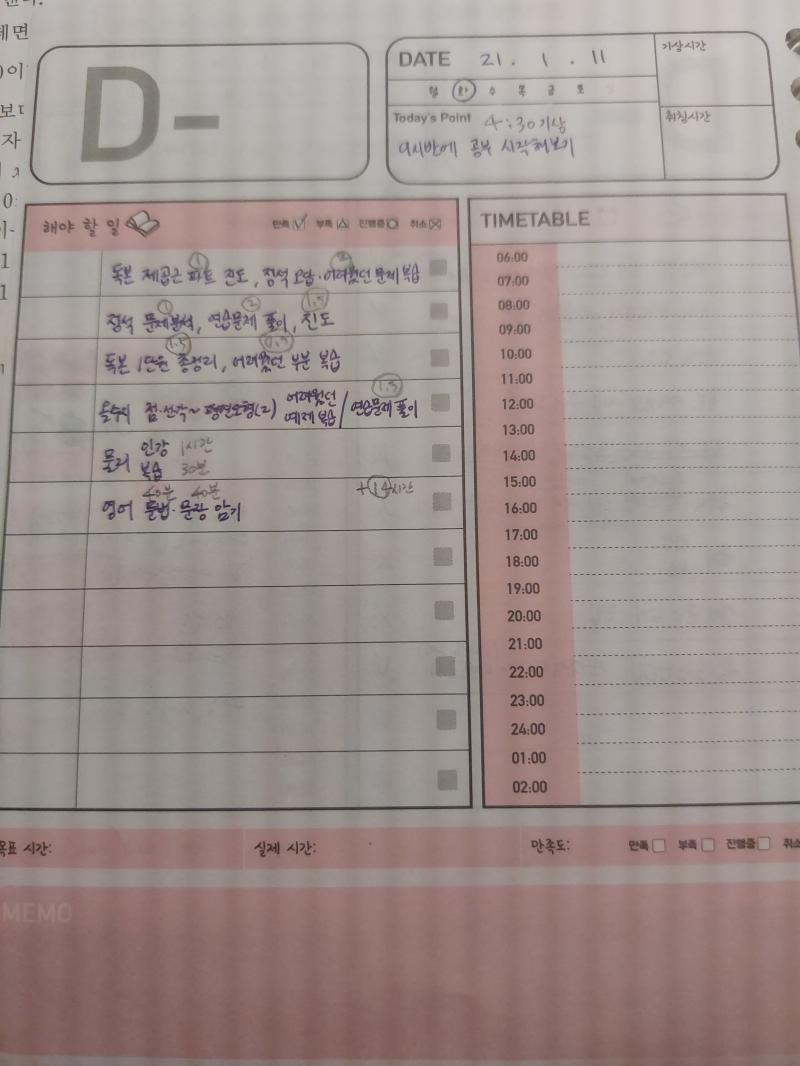 D-
DATE 21 . 1 . 11
월 화 수 목 금 토
기상시간
Today's Point 4:30 기상
취침시간
9시반에 공부 시작해보기
해야 할 일
만족 부족 진행중 취소
TIMETABLE
1
독본 제곱근 파트 진도, 정석 오답·어려웠던 문제 복습
1 2 1.5
정석 문제분석, 연습문제 풀이, 진도
1.5 0.5
독본 1단원 총정리, 어려웠던 부분 복습
1.5
올수지 점·선·각~평면도형(2) 어려웠던 예제 복습 / 연습문제 풀이
물리 인강 1시간
복습 30분
40분 40분
+14시간
영어 문법·문장 암기
06:00
07:00
08:00
09:00
10:00
11:00
12:00
13:00
14:00
15:00
16:00
17:00
18:00
19:00
20:00
21:00
22:00
23:00
24:00
01:00
02:00
목표 시간:
실제 시간:
만족도: 만족 부족 진행중 취소
MEMO